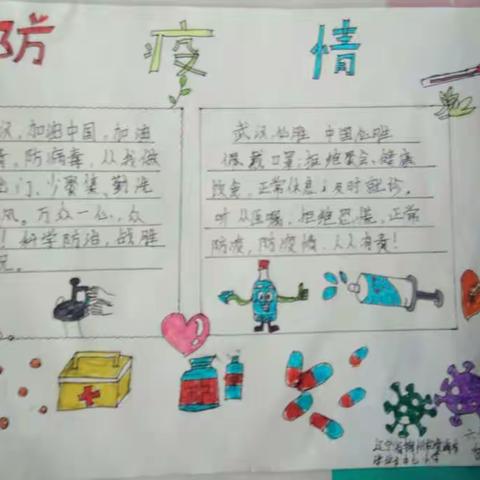 防疫情
汉,加油中国,加油
防病毒,从我做
出门,少聚集,勤洗
风。万众一心,众
!科学防治,战胜
武汉必胜 中国必胜
佩戴口罩,拒绝聚会,健康
饮食,正常休息,及时就诊。
听从医嘱,拒绝恐慌,正常
防疫,防疫情,人人有责!
辽宁省锦州市
小学
六